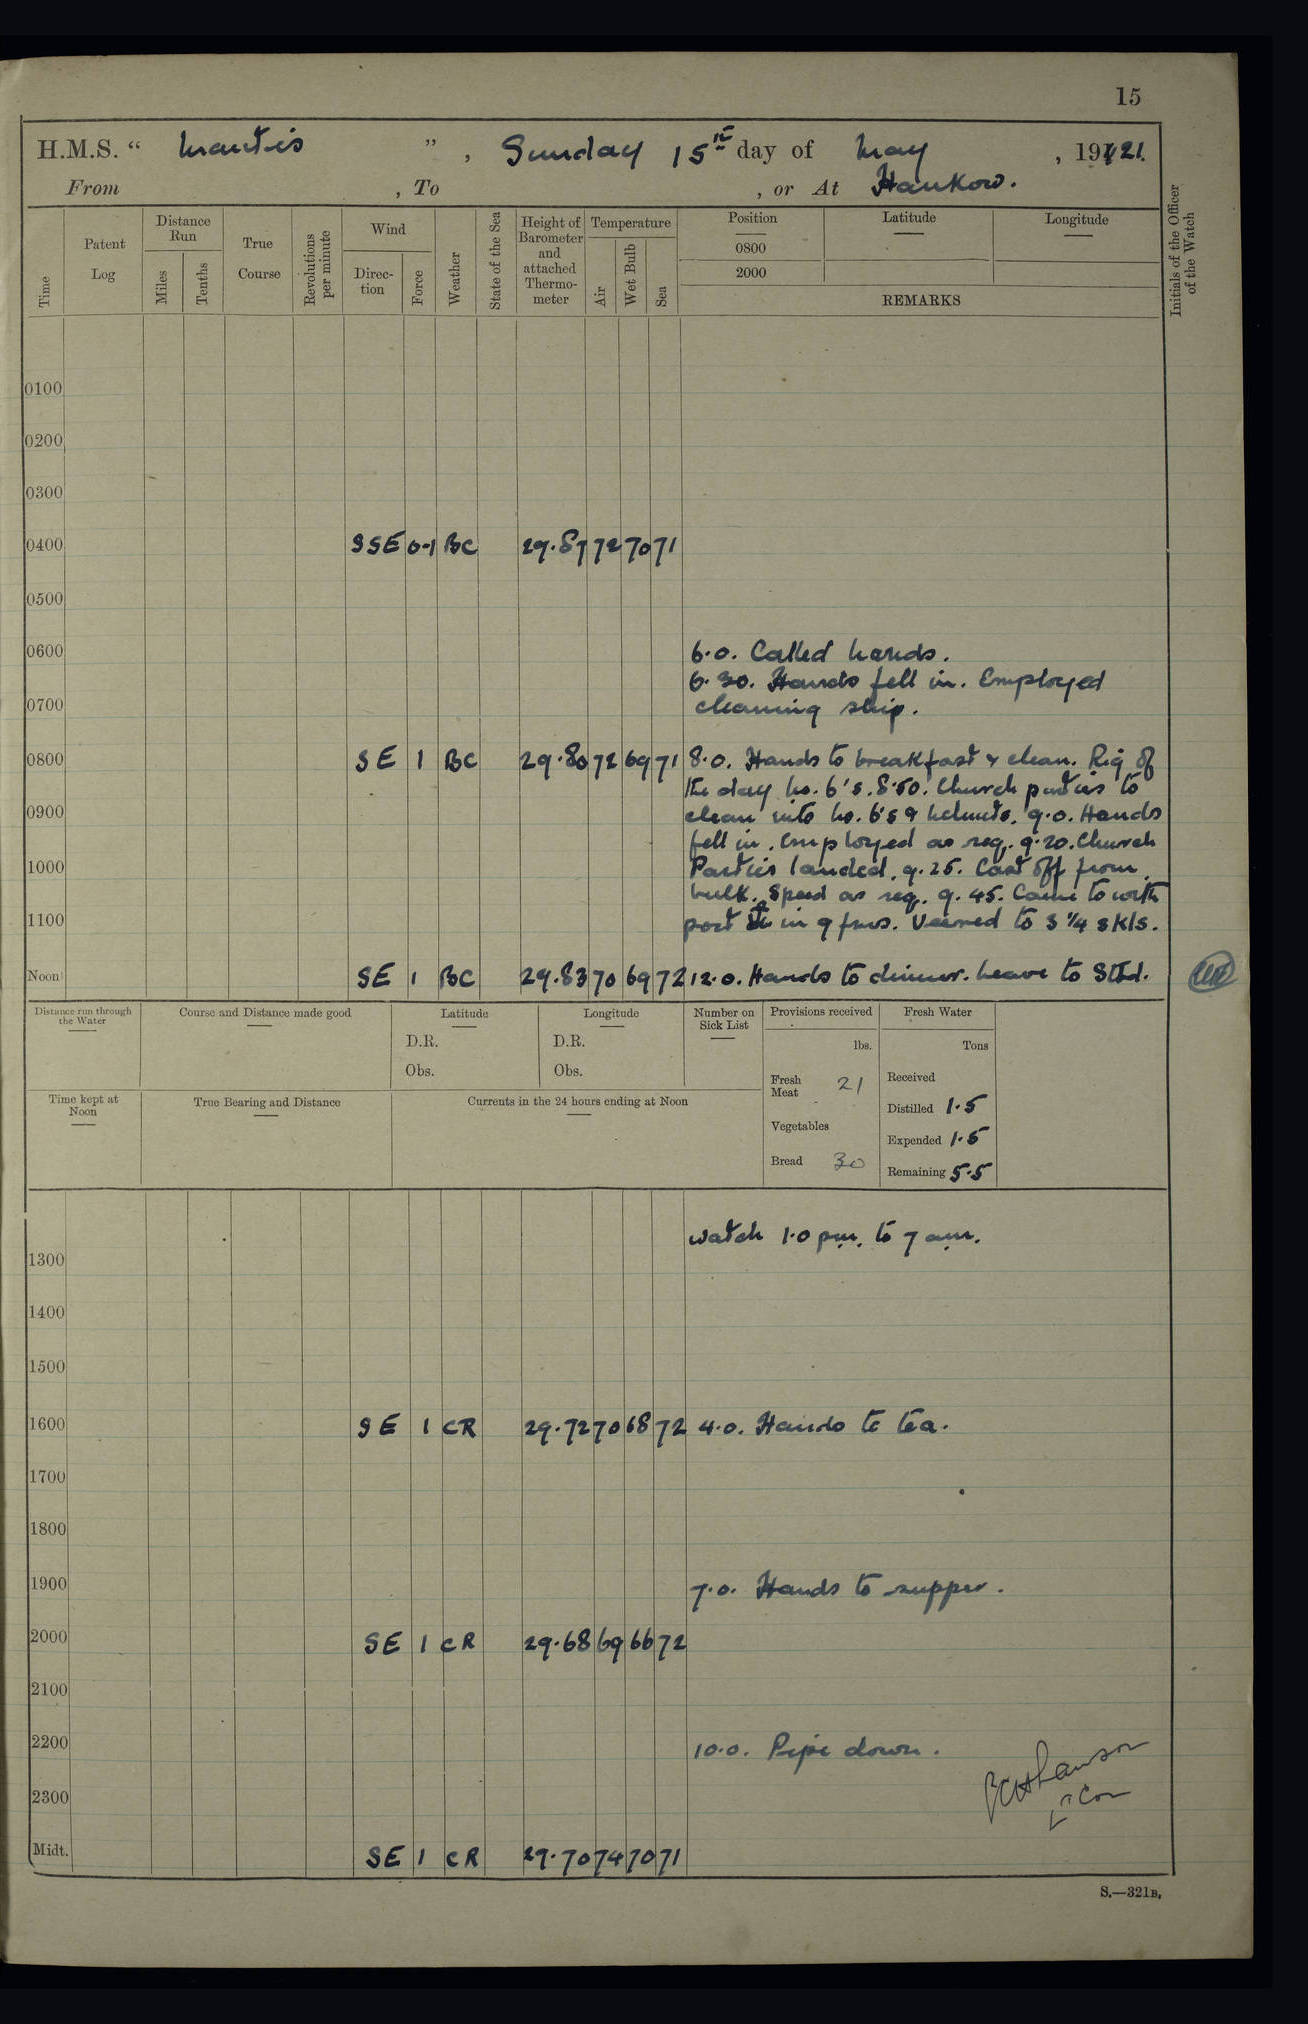 15
H.M.S. “ Mantis ”, Sunday 15th day of May , 1921.
From , To , or At Hankow.
Time
Patent Log
Distance Run
Miles
Tenths
True Course
Revolutions per minute
Wind
Direction
Force
Weather
State of the Sea
Height of Barometer and attached Thermometer
Temperature
Air
Wet Bulb
Sea
Position
0800
2000
Latitude
Longitude
REMARKS
Initials of the Officer of the Watch
0100
0200
0300
0400 SSE 0-1 BC 29.87 72 70 71
0500
0600 6.0. Called hands.
6.30. Hands fell in. Employed
0700 cleaning ship.
0800 SE 1 BC 29.80 72 69 71 8.0. Hands to breakfast & clean. Rig of
the day No. 6's. 8.50. Church parties to
0900 clean into No. 6's & helmets. 9.0. Hands
fell in. Employed as req. 9.20. Church
1000 Parties landed. 9.25. Cast off from
hulk. Speed as req. 9.45. Came to with
1100 port in 9 fms. Veered to 3 1/4 skls.
Noon SE 1 BC 29.83 70 69 72 12.0. Hands to dinner. Leave to Stbd.
Distance run through the Water
Course and Distance made good
Latitude
D.R.
Obs.
Longitude
D.R.
Obs.
Number on Sick List
Provisions received
lbs.
Fresh Meat 21
Vegetables
Bread 30
Fresh Water
Tons
Received
Distilled 1.5
Expended 1.5
Remaining 5.5
Time kept at Noon
True Bearing and Distance
Currents in the 24 hours ending at Noon
watch 1.0 pm. to 7 am.
1300
1400
1500
1600 SE 1 CR 29.72 70 68 72 4.0. Hands to tea.
1700
1800
1900 7.0. Hands to supper.
2000 SE 1 CR 29.68 69 66 72
2100
2200 10.0. Pipe down.
2300
Lt Com
Midt. SE 1 CR 29.70 74 70 71
S.—321B.